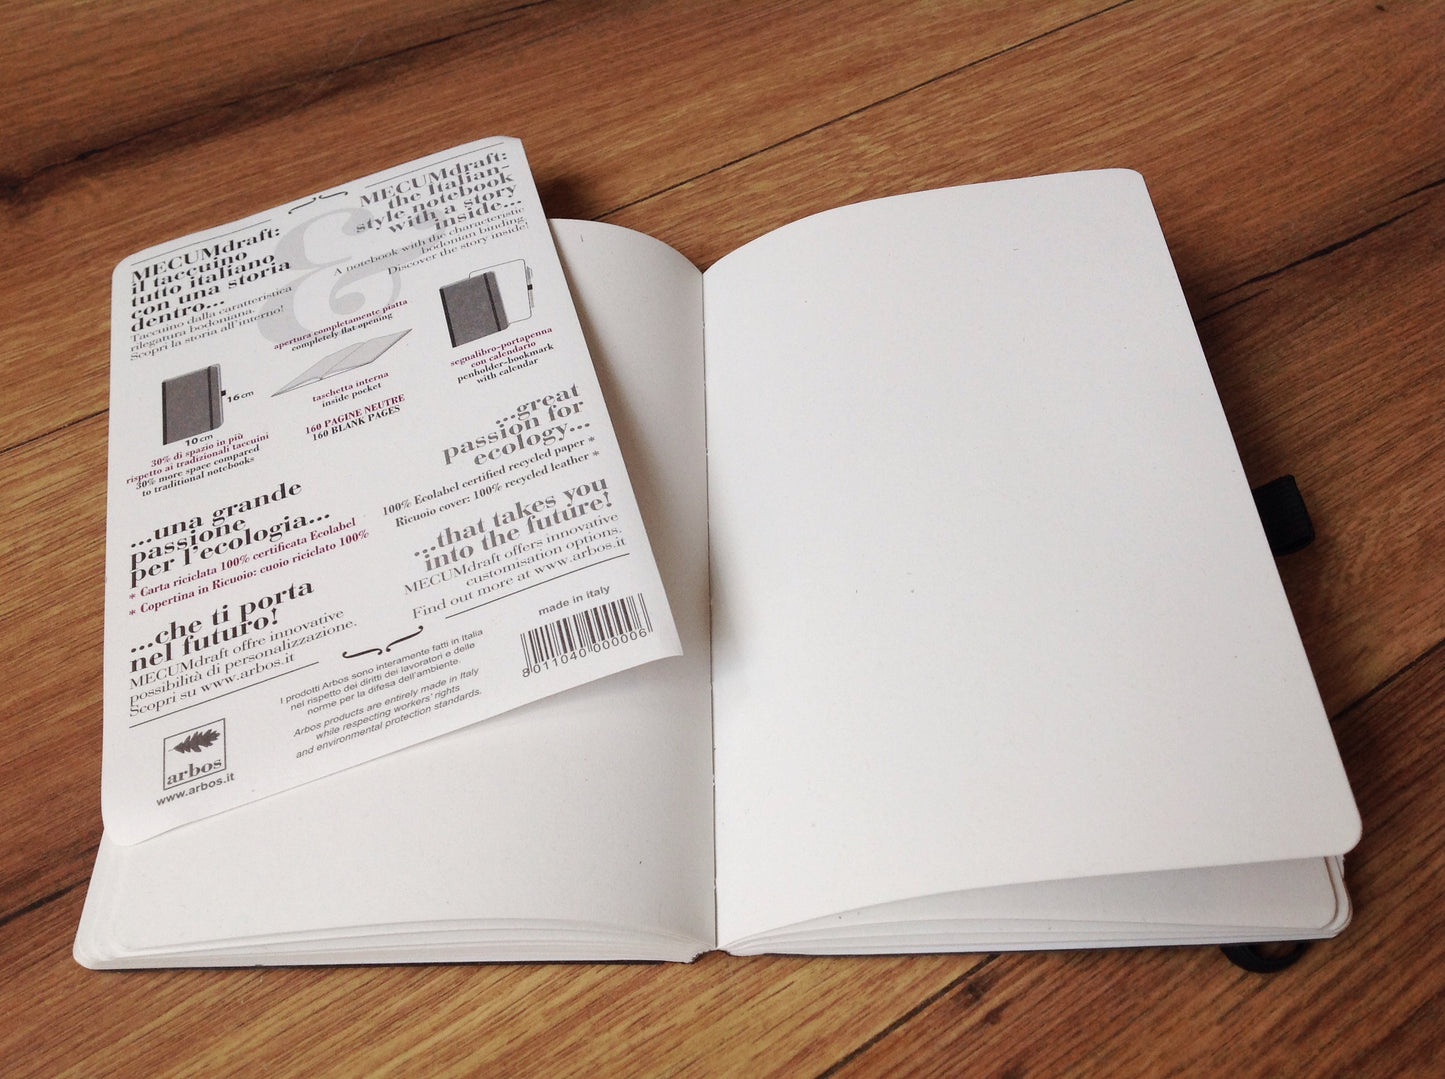 MECUMdraft:
il taccuino
tutto italiano
con una storia
dentro...
Taccuino dalla caratteristica
rilegatura bodoniana.
Scopri la storia all'interno!
&
MECUMdraft:
the Italian-
style notebook
with a story
inside...
A notebook with the characteristic
bodonian binding
Discover the story inside!
16cm
10cm
30% di spazio in più
rispetto ai tradizionali taccuini
30% more space compared
to traditional notebooks
apertura completamente piatta
completely flat opening
taschetta interna
inside pocket
160 PAGINE NEUTRE
160 BLANK PAGES
segnalibro-portapenna
con calendario
penholder-bookmark
with calendar
...una grande
passione
per l'ecologia...
* Carta riciclata 100% certificata Ecolabel
* Copertina in Ricuoio: cuoio riciclato 100%
...great
passion for
ecology...
100% Ecolabel certified recycled paper *
Ricuoio cover: 100% recycled leather *
...che ti porta
nel futuro!
MECUMdraft offre innovative
possibilità di personalizzazione.
Scopri su www.arbos.it
...that takes you
into the future!
MECUMdraft offers innovative
customisation options.
Find out more at www.arbos.it
arbos
www.arbos.it
I prodotti Arbos sono interamente fatti in Italia
nel rispetto dei diritti dei lavoratori e delle
norme per la difesa dell'ambiente.
Arbos products are entirely made in Italy
while respecting workers' rights
and environmental protection standards.
made in italy
8 011040 000006